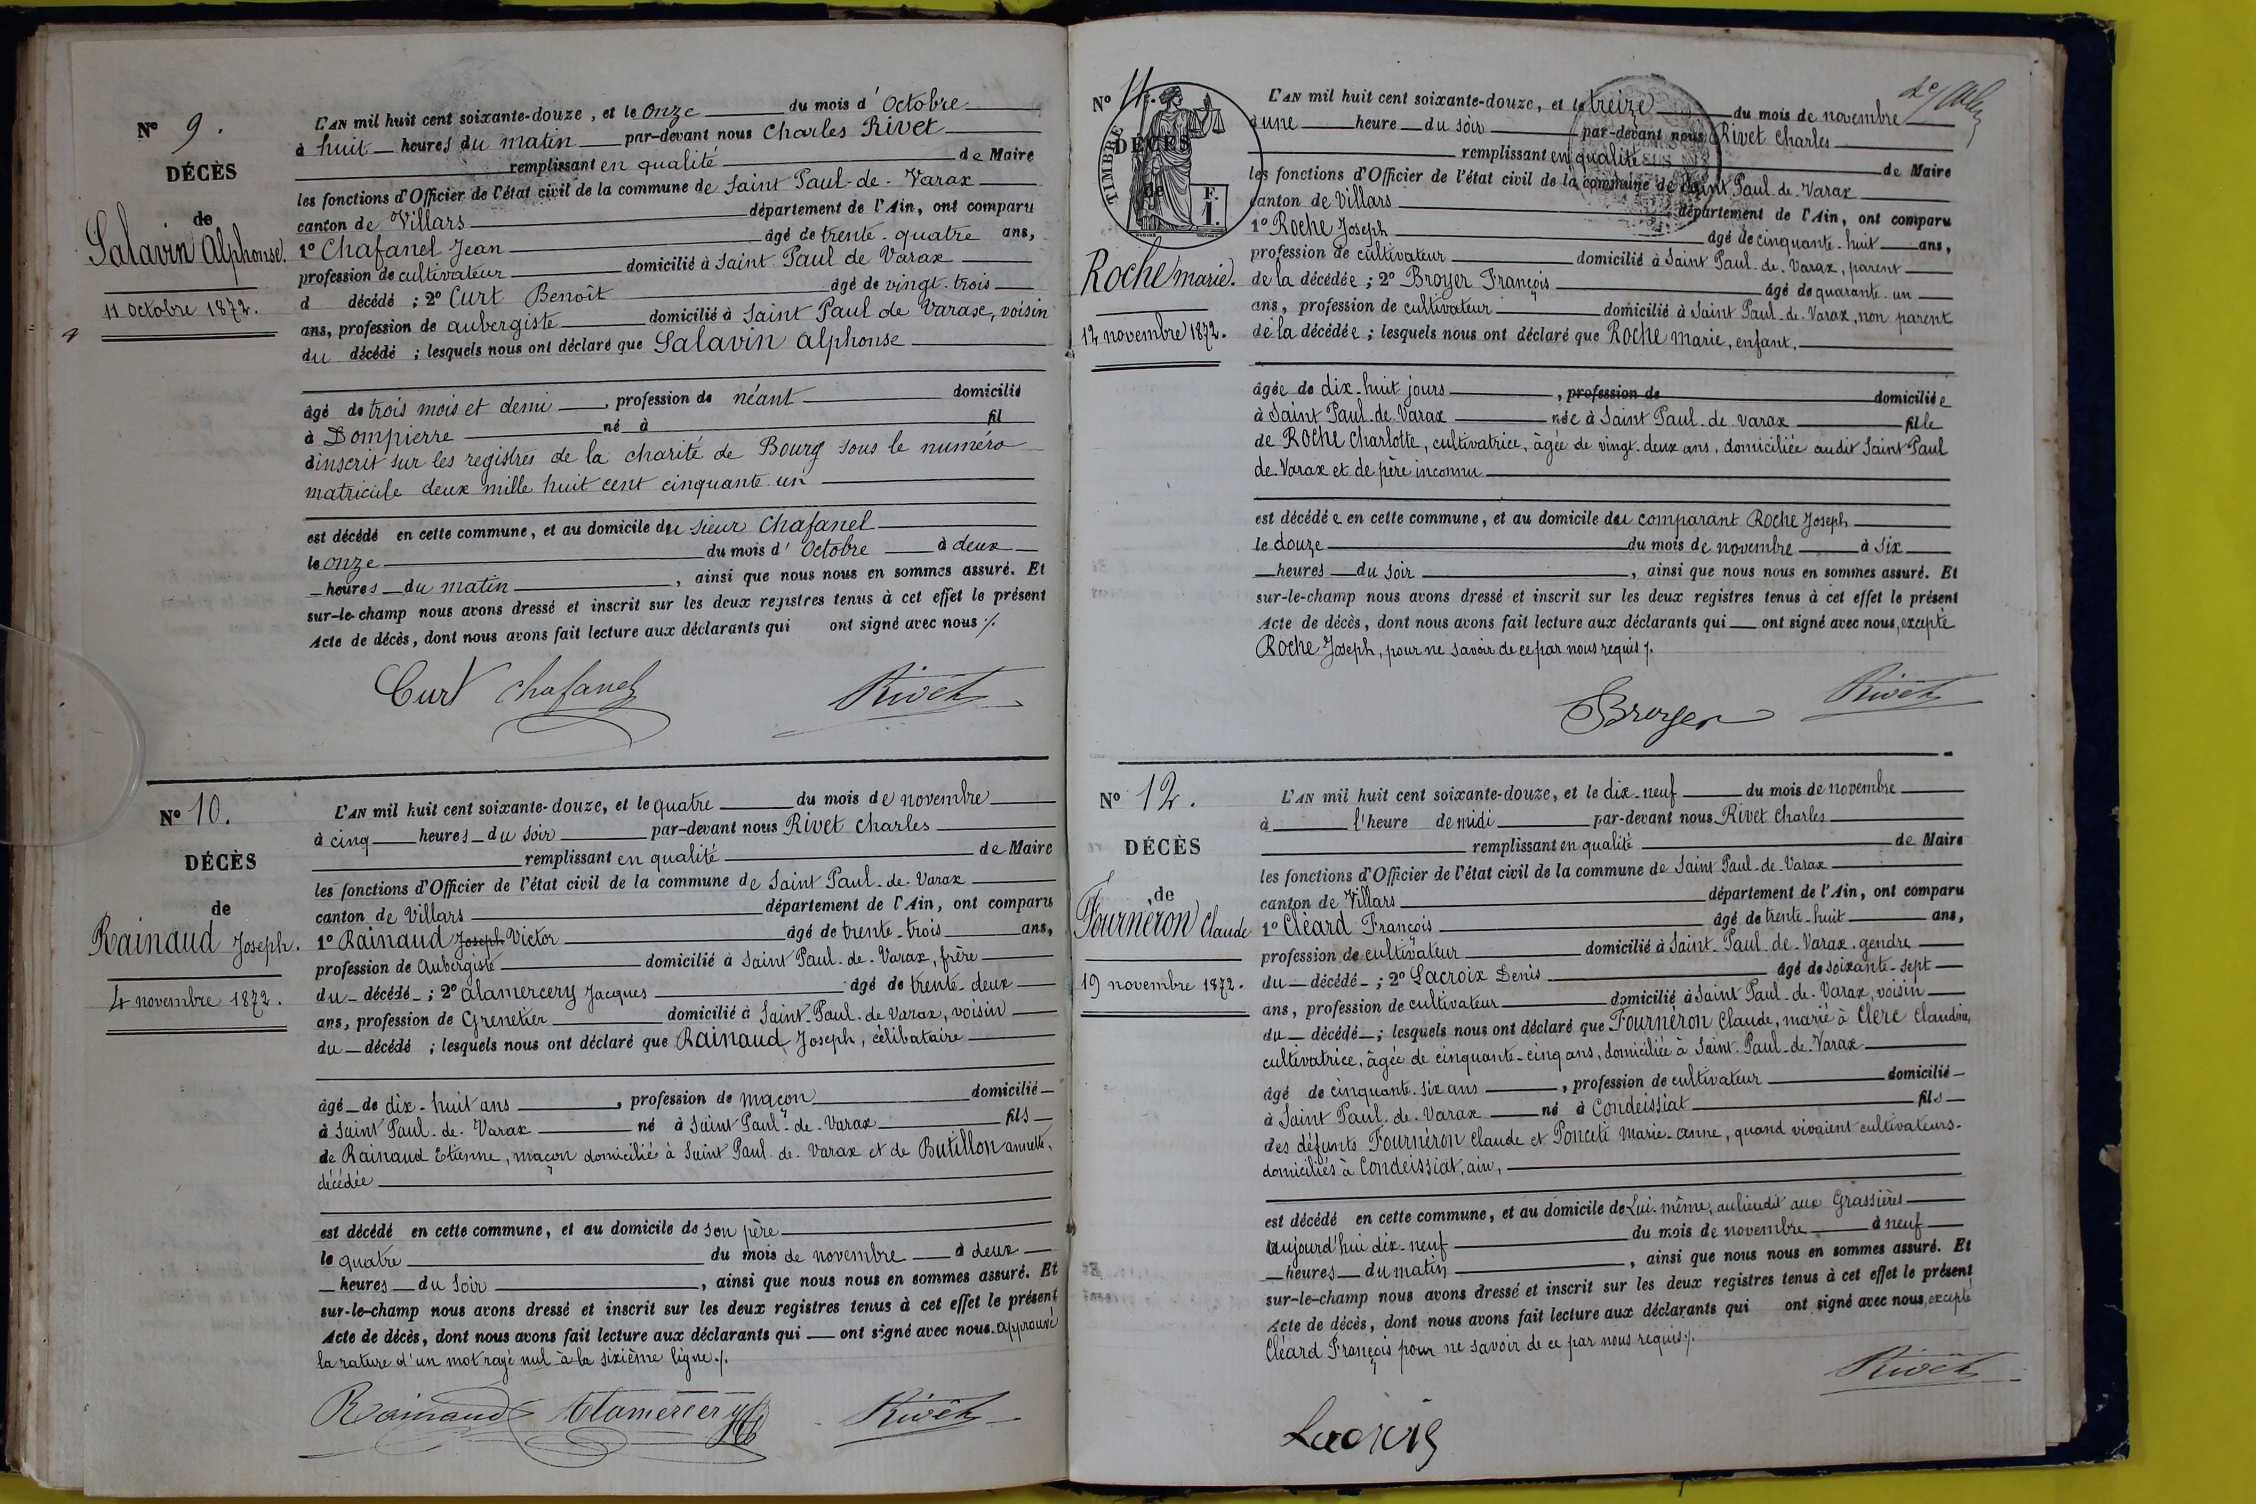 N° 9.
DÉCÈS
de
Salavin Alphonse.
11 octobre 1872.
L'AN mil huit cent soixante-douze, et le onze du mois d' Octobre
à huit heures du matin par-devant nous Charles Rivet
remplissant en qualité de Maire
les fonctions d'Officier de l'état civil de la commune de Saint Paul-de-Varax
canton de Villars département de l'Ain, ont comparu
1° Chafanel Jean âgé de trente-quatre ans,
profession de cultivateur domicilié à Saint Paul de Varax
d décédé ; 2° Curt Benoît âgé de vingt-trois
ans, profession de aubergiste domicilié à Saint Paul de Varax, voisin
du décédé ; lesquels nous ont déclaré que Salavin alphonse
âgé de trois mois et demi, profession de néant domicilié
à Dompierre né à fil
d inscrit sur les registres de la charité de Bourg sous le numéro
matricule deux mille huit cent cinquante-un
est décédé en cette commune, et au domicile du sieur Chafanel
le onze du mois d' Octobre à deux
heures du matin, ainsi que nous nous en sommes assuré. Et
sur-le-champ nous avons dressé et inscrit sur les deux registres tenus à cet effet le présent
Acte de décès, dont nous avons fait lecture aux déclarants qui ont signé avec nous ./.
Curt Chafanel Rivet
N° 10.
DÉCÈS
de
Rainaud Joseph.
4 novembre 1872.
L'AN mil huit cent soixante-douze, et le quatre du mois de novembre
à cinq heures du soir par-devant nous Rivet Charles
remplissant en qualité de Maire
les fonctions d'Officier de l'état civil de la commune de Saint Paul-de-Varax
canton de Villars département de l'Ain, ont comparu
1° Rainaud Joseph Victor âgé de trente-trois ans,
profession de Aubergiste domicilié à Saint Paul-de-Varax, frère
du décédé ; 2° alamercery Jacques âgé de trente-deux
ans, profession de Grenetier domicilié à Saint-Paul-de Varax, voisin
du décédé ; lesquels nous ont déclaré que Rainaud Joseph, célibataire
âgé de dix-huit ans, profession de maçon domicilié
à Saint Paul-de-Varax né à Saint Paul-de-Varax fils
de Rainaud Etienne, maçon domicilié à Saint Paul-de-Varax et de Butillon annette,
décédée
est décédé en cette commune, et au domicile de son père
le quatre du mois de novembre à deux
heures du soir, ainsi que nous nous en sommes assuré. Et
sur-le-champ nous avons dressé et inscrit sur les deux registres tenus à cet effet le présent
Acte de décès, dont nous avons fait lecture aux déclarants qui ont signé avec nous. approuvé
la rature d'un mot rayé nul à la sixième ligne ./.
Rainaud Alamercery Rivet
N° 11.
TIMBRE
F.
1.
DÉCÈS
de
Roche marie.
12 novembre 1872.
L'AN mil huit cent soixante-douze, et le treize du mois de novembre
à une heure du soir par-devant nous Rivet Charles
remplissant en qualité de Maire
les fonctions d'Officier de l'état civil de la commune de Saint Paul-de-Varax
canton de Villars département de l'Ain, ont comparu
1° Roche Joseph âgé de cinquante-huit ans,
profession de cultivateur domicilié à Saint Paul-de-Varax, parent
de la décédée ; 2° Broyer François âgé de quarante-un
ans, profession de cultivateur domicilié à Saint Paul-de-Varax, non parent
de la décédée ; lesquels nous ont déclaré que Roche marie, enfant,
âgée de dix-huit jours, profession de domiciliée
à Saint Paul-de-Varax née à Saint Paul-de-Varax fille
de Roche Charlotte, cultivatrice, âgée de vingt-deux ans, domiciliée audit Saint Paul
de-Varax et de père inconnu
est décédée en cette commune, et au domicile du comparant Roche Joseph
le douze du mois de novembre à six
heures du soir, ainsi que nous nous en sommes assuré. Et
sur-le-champ nous avons dressé et inscrit sur les deux registres tenus à cet effet le présent
Acte de décès, dont nous avons fait lecture aux déclarants qui ont signé avec nous, excepté
Roche Joseph, pour ne savoir de ce par nous requis ./.
Broyer Rivet
N° 12.
DÉCÈS
de
Fournéron Claude
19 novembre 1872.
L'AN mil huit cent soixante-douze, et le dix-neuf du mois de novembre
à l'heure de midi par-devant nous Rivet Charles
remplissant en qualité de Maire
les fonctions d'Officier de l'état civil de la commune de Saint Paul-de-Varax
canton de Villars département de l'Ain, ont comparu
1° Cléard François âgé de trente-huit ans,
profession de cultivateur domicilié à Saint-Paul-de-Varax, gendre
du décédé ; 2° Lacroix Denis âgé de soixante-sept
ans, profession de cultivateur domicilié à Saint Paul-de-Varax, voisin
du décédé ; lesquels nous ont déclaré que Fournéron Claude, marié à Clerc Claudine,
cultivatrice, âgée de cinquante-cinq ans, domiciliée à Saint-Paul-de-Varax
âgé de cinquante-six ans, profession de cultivateur domicilié
à Saint Paul-de-Varax né à Condeissiat fils
des défunts Fournéron Claude et Ponceti Marie-anne, quand vivaient cultivateurs
domiciliés à Condeissiat, ain,
est décédé en cette commune, et au domicile de Lui-même, au lieu dit aux Grassières
aujourd'hui dix-neuf du mois de novembre à neuf
heures du matin, ainsi que nous nous en sommes assuré. Et
sur-le-champ nous avons dressé et inscrit sur les deux registres tenus à cet effet le présent
Acte de décès, dont nous avons fait lecture aux déclarants qui ont signé avec nous, excepté
Cléard François pour ne savoir de ce par nous requis ./.
Rivet
Lacroix